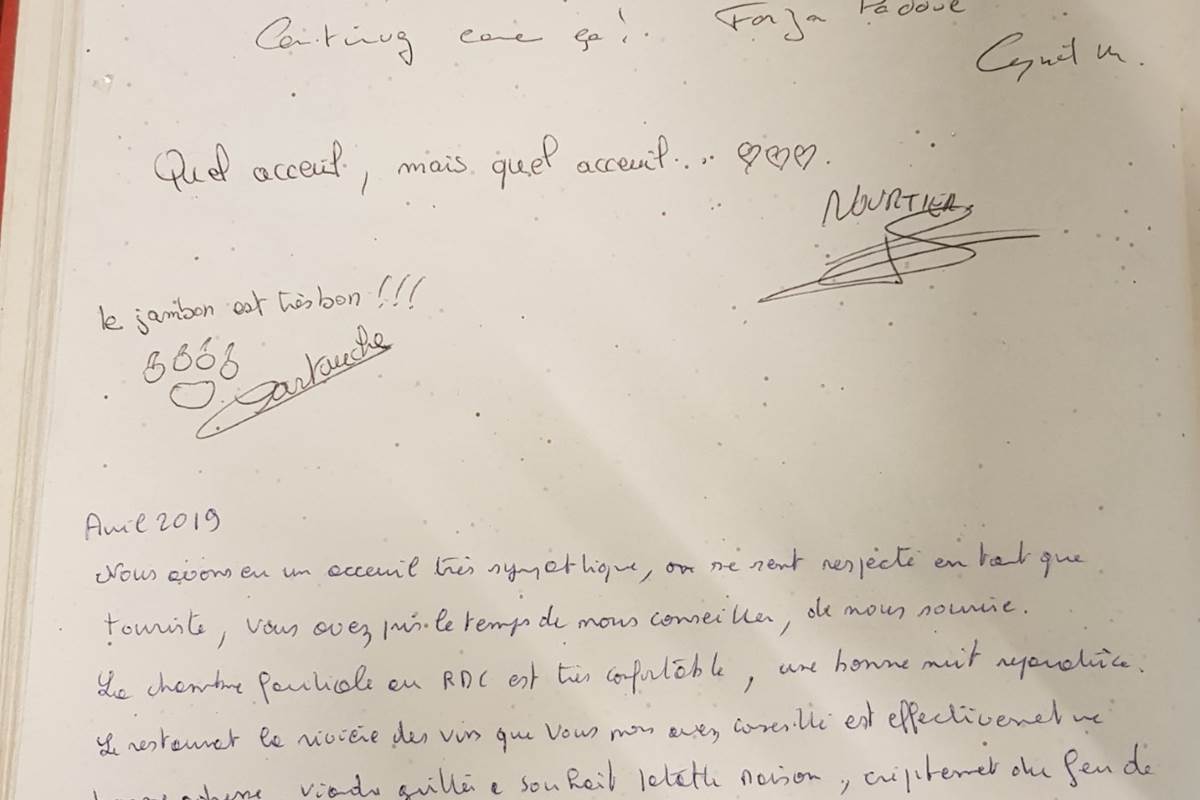 Continuez comme ça! Forza Padoue
Quel acceuil, mais quel acceuil... ♡♡♡.
NOURTIER
le jambon est très bon !!!
Cartouche
Avril 2019
Nous avons eu un acceuil très sympathique, on se sent respecté en tant que
touriste, vous avez pris le temps de nous conseiller, de nous sourire.
La chambre familiale au RDC est très confortable, une bonne nuit réparatrice.
Le restaurant la rivière des vins que vous nous avez conseillé est effectivement
viande grillée a souhait maison, du feu de